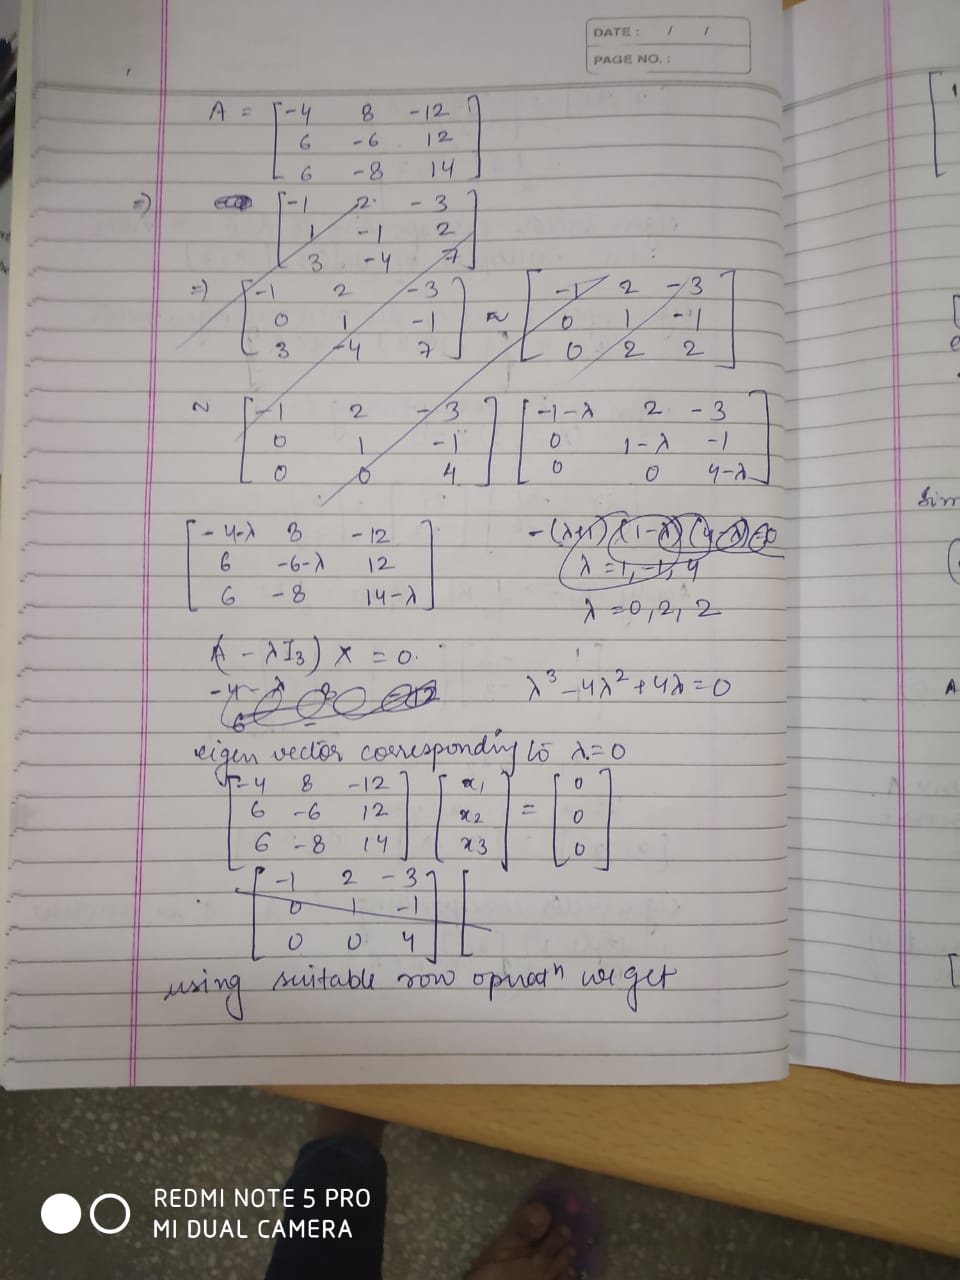 DATE : / /
PAGE NO. :
A = [ -4 8 -12
6 -6 12
6 -8 14 ]
=) [ -1 2 -3
1 -1 2
3 -4 7 ]
=) [ -1 2 -3 ] ~ [ -1 2 -3 ]
0 1 -1 0 1 -1
3 -4 7 0 2 2
~ [ -1 2 -3 ] [ -1-λ 2 -3 ]
0 1 -1 0 1-λ -1
0 0 4 0 0 4-λ
[ -4-λ 8 -12
6 -6-λ 12
6 -8 14-λ ]
-(λ+1) (1-λ) (4-λ) =0
λ = 1, -1, 4
λ = 0, 2, 2
(A - λI3) X = 0.
λ³ - 4λ² + 4λ = 0
eigen vector corresponding to λ=0
[ -4 8 -12 ] [ x1 ] = [ 0 ]
6 -6 12 x2 0
6 -8 14 x3 0
[ -1 2 -3 ] [
0 1 -1
0 0 4
using suitable row opratⁿ we get
sim
A
REDMI NOTE 5 PRO
MI DUAL CAMERA